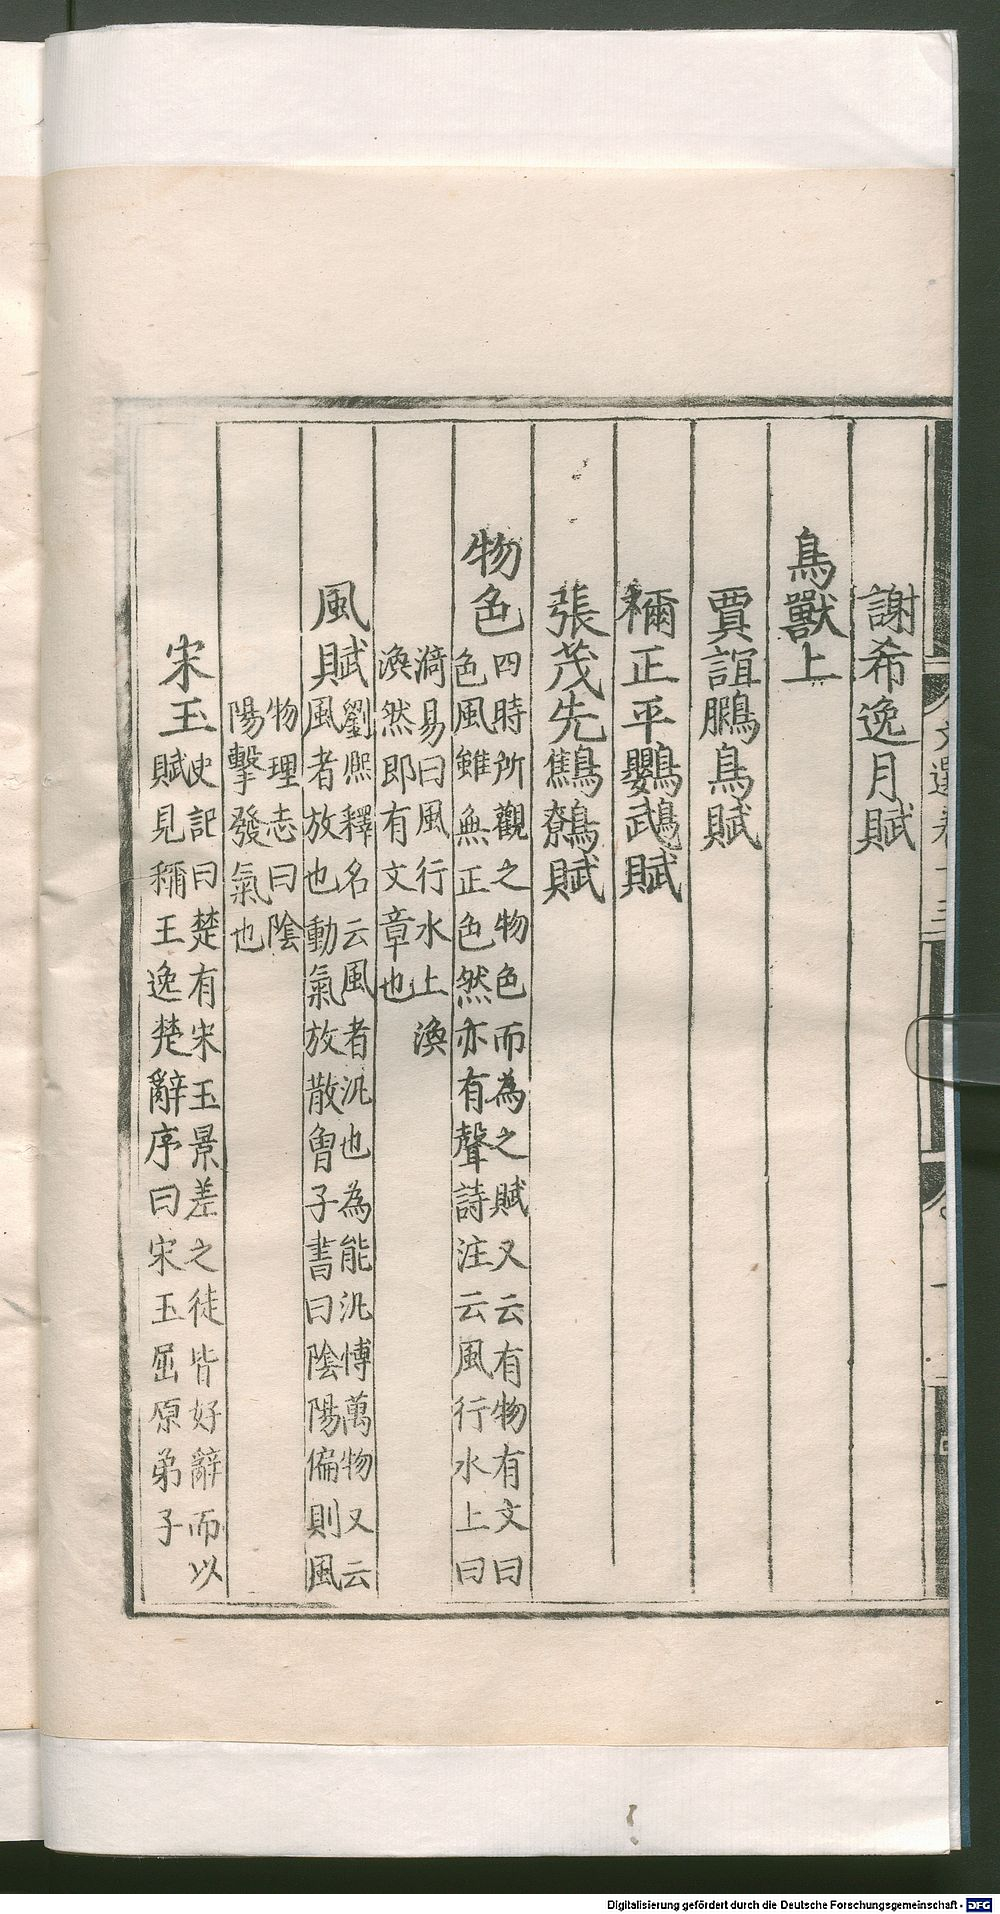 謝希逸月賦
鳥獸上
賈誼鵩鳥賦
禰正平鸚鵡賦
張茂先鷦鷯賦
物色四時所觀之物色而為之賦又云有物有文曰
色風雖無正色然亦有聲詩注云風行水上曰
漪易曰風行水上渙
渙然即有文章也
風賦劉熙釋名云風者汎也為能汎愽萬物又云
風者放也動氣放散曾子書曰陰陽偏則風
物理志曰陰
陽擊發氣也
宋玉史記曰楚有宋玉景差之徒皆好辭而以
賦見稱王逸楚辭序曰宋玉屈原弟子
Digitalisierung gefördert durch die Deutsche Forschungsgemeinschaft - DFG